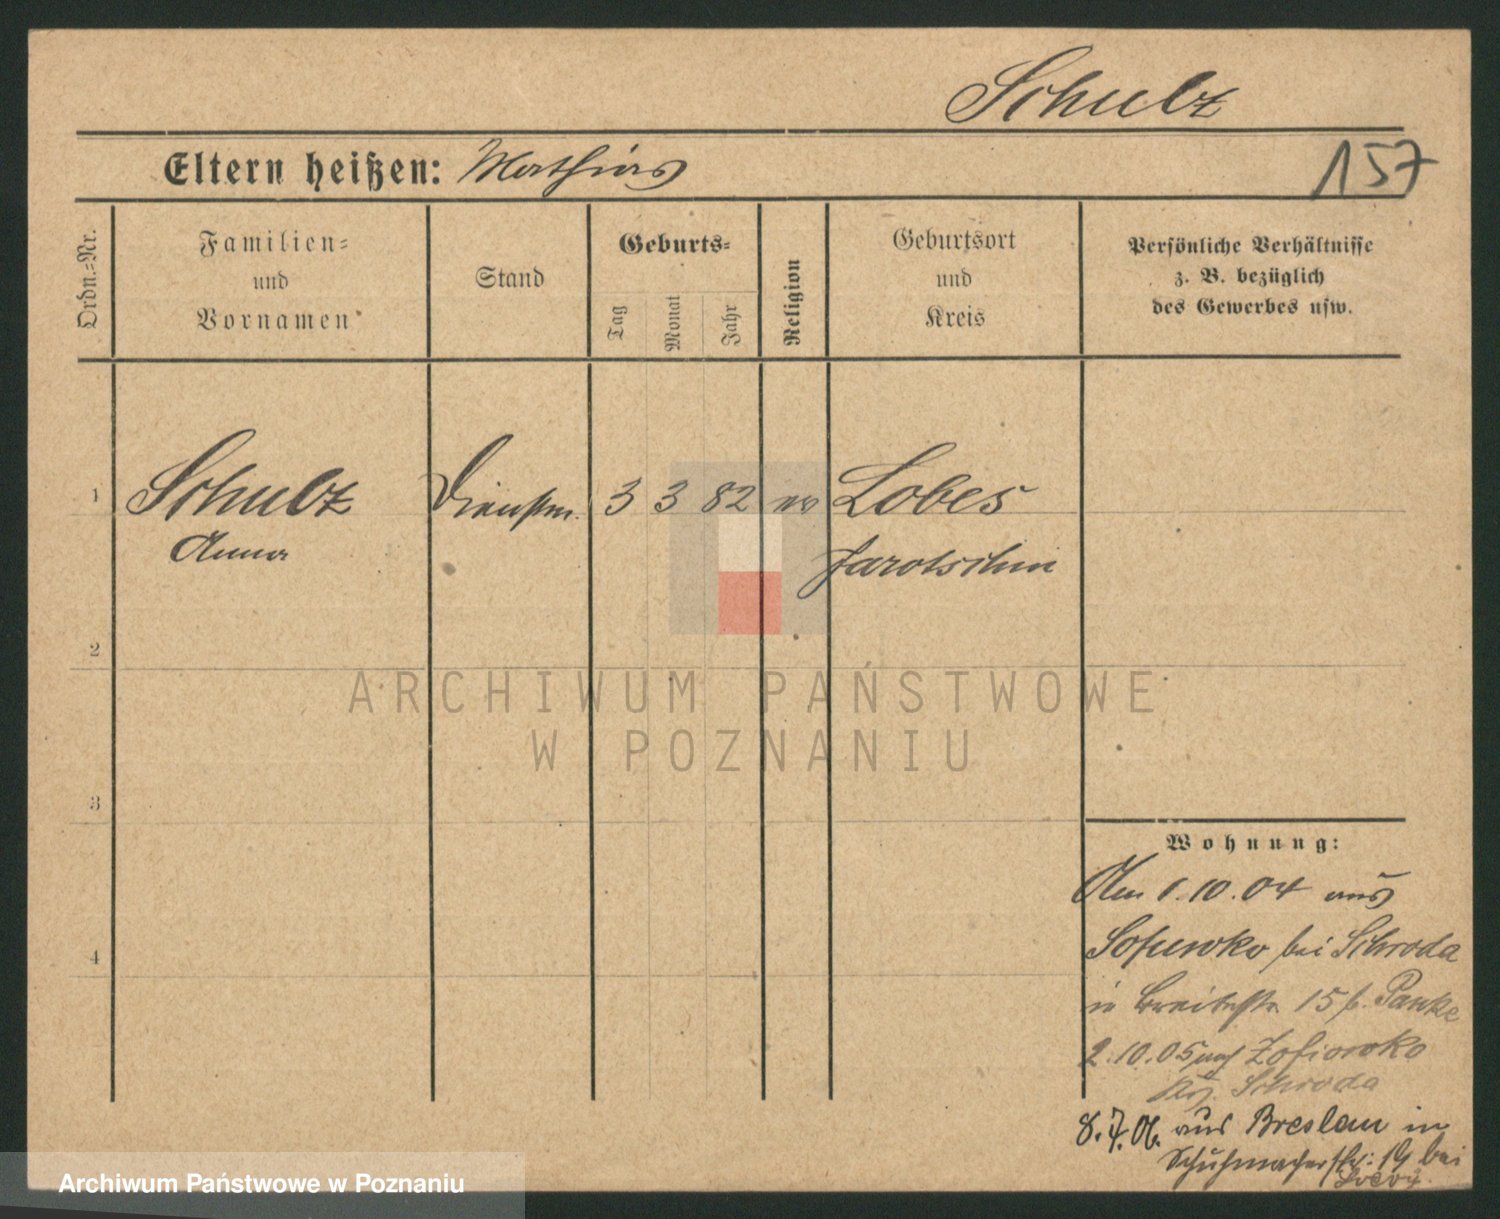 Schulz
Eltern heißen: Mathias
157
Ordn.=Nr.
Familien=
und
Vornamen
Stand
Geburts=
Tag
Monat
Jahr
Religion
Geburtsort
und
Kreis
Persönliche Verhältnisse
z. B. bezüglich
des Gewerbes usw.
1
Schulz
Anna
Dienstm.
3 3 82 ev
Lobes
Jarotschin
2
3
4
ARCHIWUM PAŃSTWOWE
W POZNANIU
Wohnung:
Am 1.10.04 aus
bei Schroda
in Breitestr. 15 b. Panke
2.10.05 nach Zofiowko
Krs. Schroda
8.7.06. aus Breslau in
Schuhmacherstr. 19 bei
Archiwum Państwowe w Poznaniu